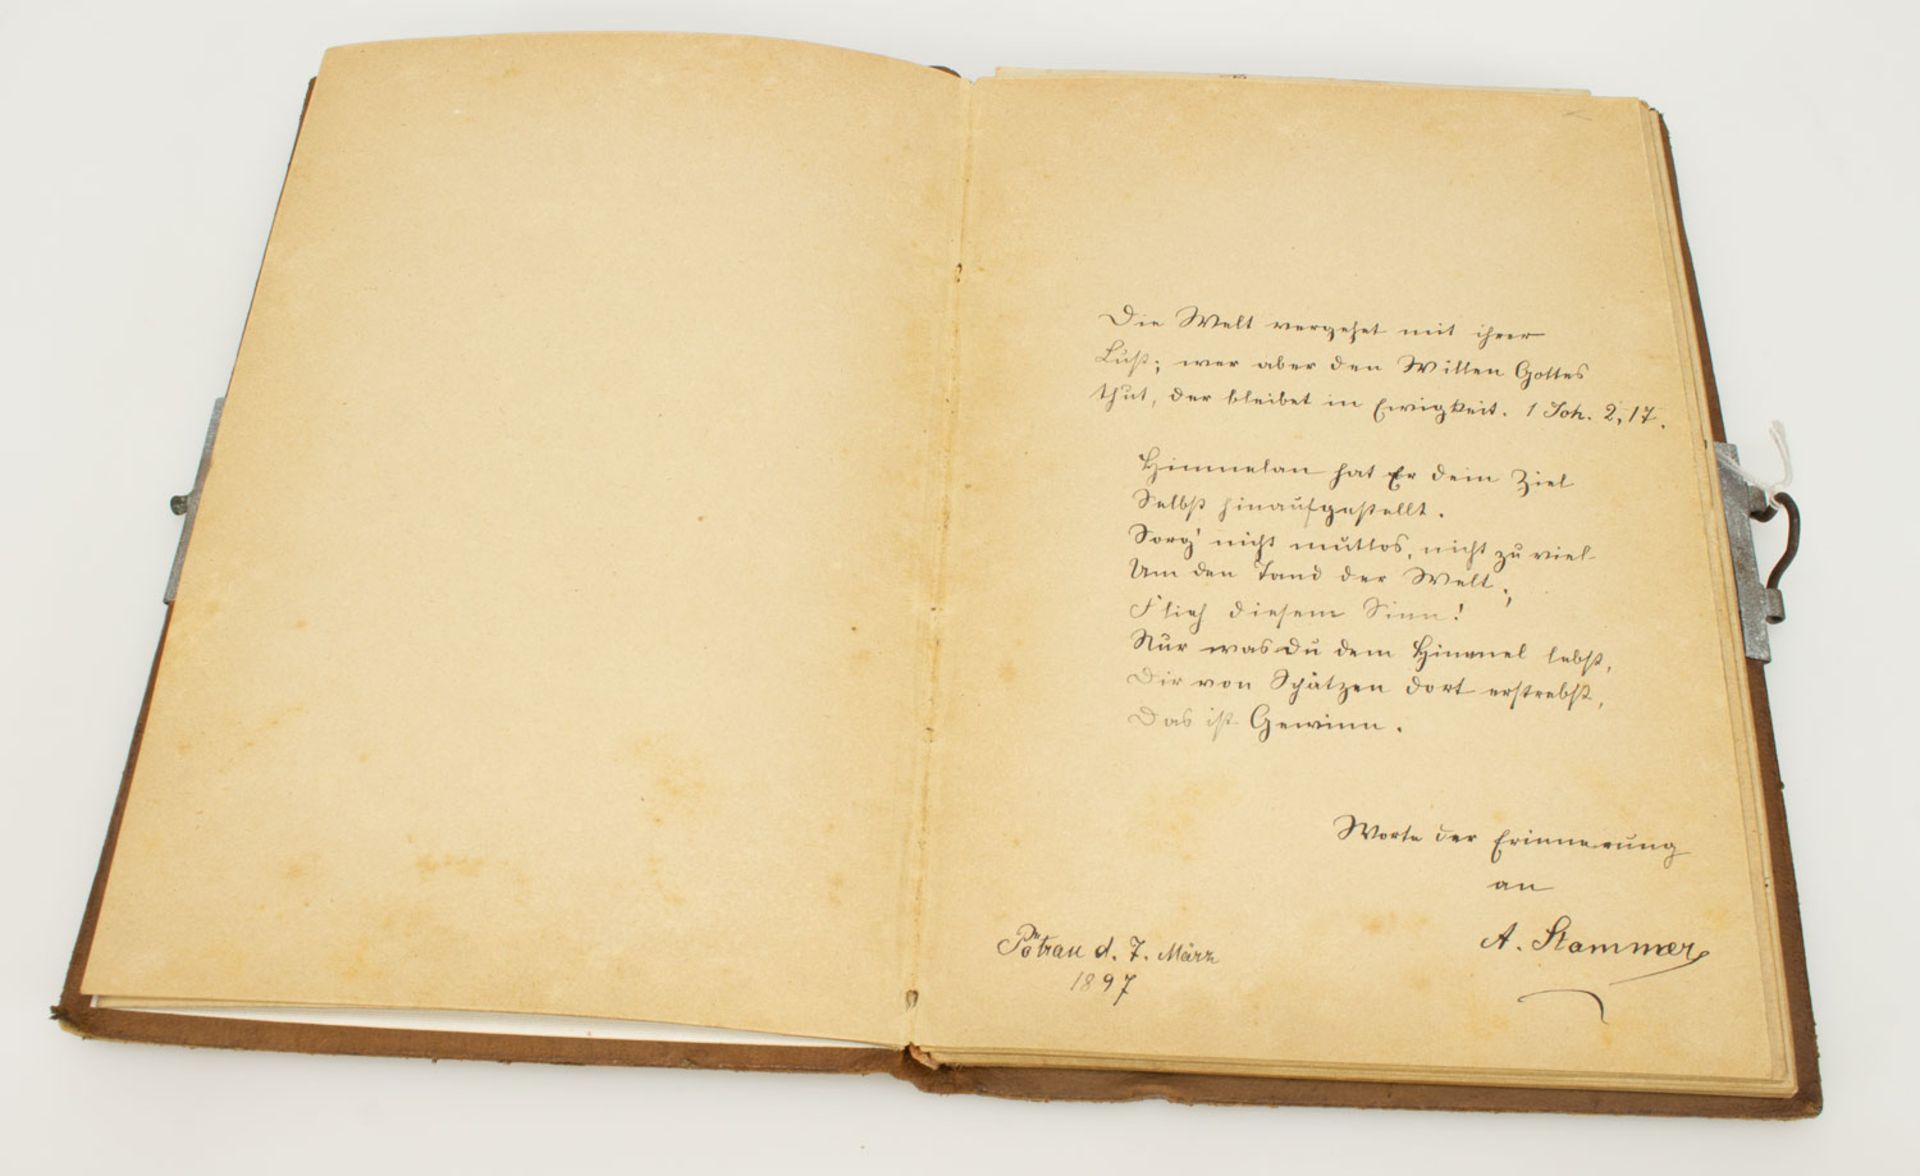 Die Welt vergehet mit ihrer
Lust; wer aber den Willen Gottes
thut, der bleibet in Ewigkeit. 1 Joh. 2, 17.
Himmelan hat Er dein Ziel
Selbst hinaufgestellt.
Sorg' nicht mutlos, nicht zu viel
Um den Tand der Welt;
Flieh diesem Sinn!
Nur was du dem Himmel lebst,
Dir von Schätzen dort erstrebst,
Das ist Gewinn.
Worte der Erinnerung
an
A. Stammer
Pötrau d. 7. März
1897